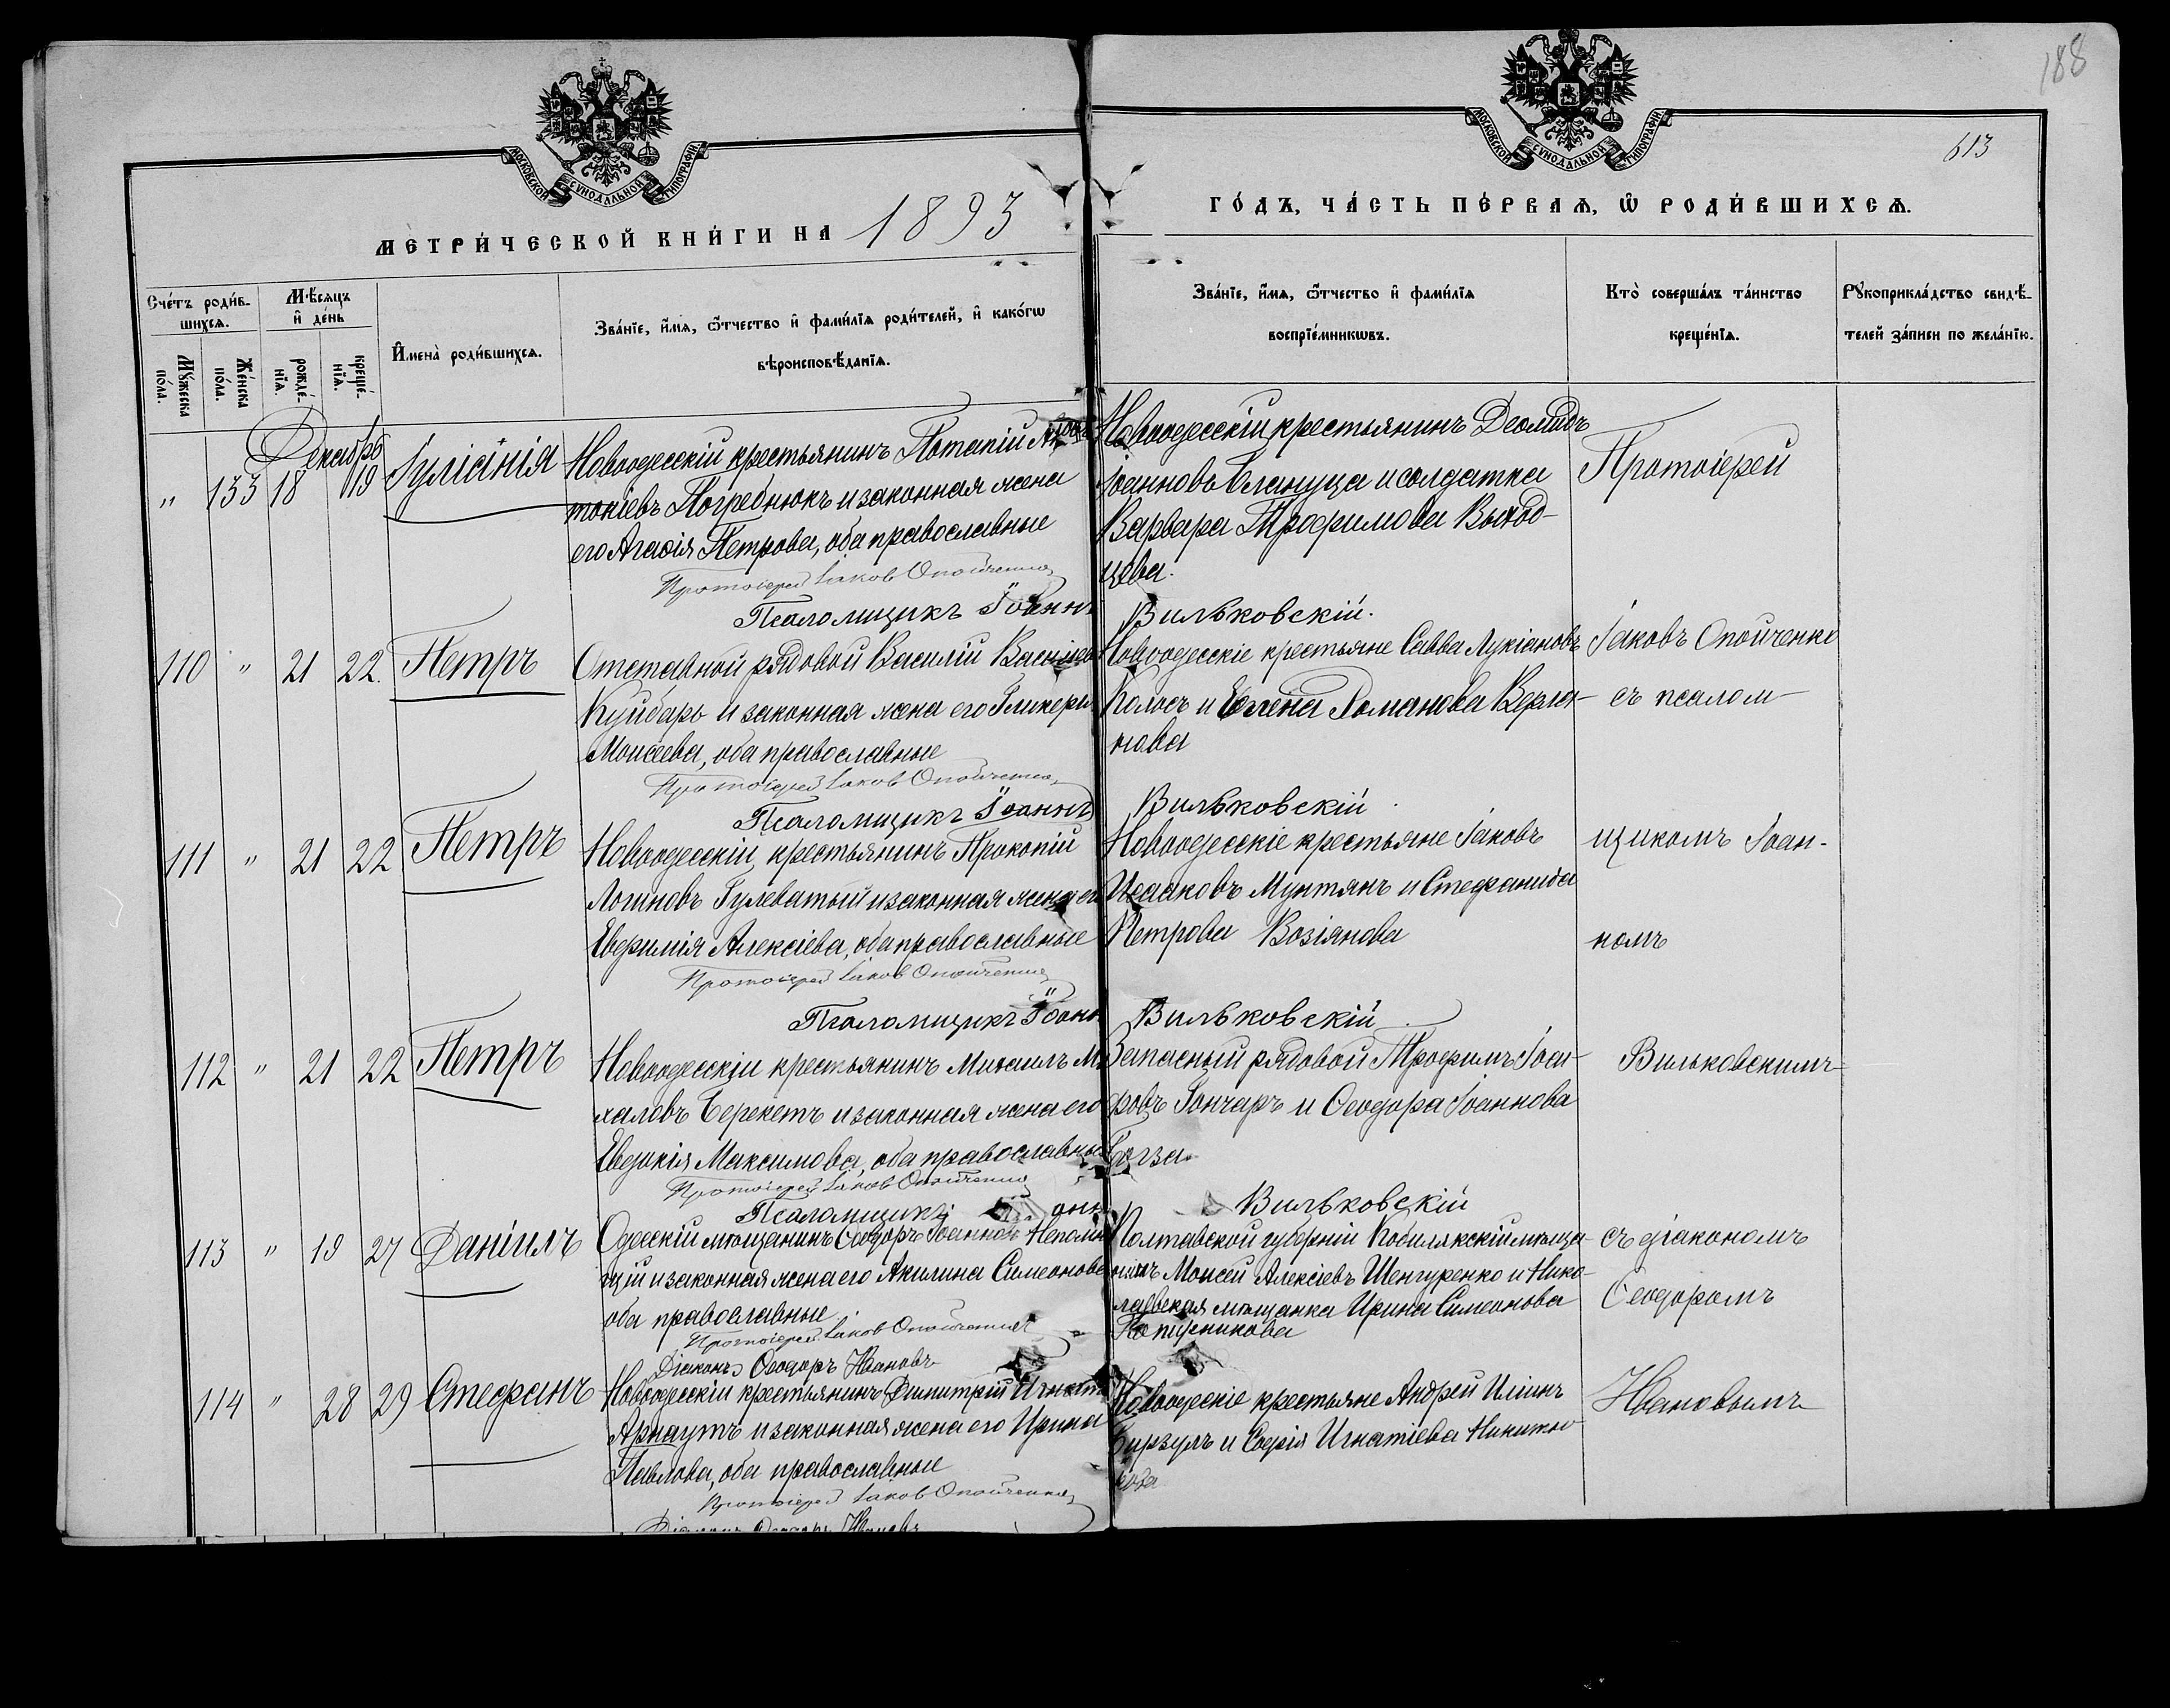 188
613
МОСКОВСКОЙ СѴНОДАЛЬНОЙ ТИПОГРАФІИ
МОСКОВСКОЙ СѴНОДАЛЬНОЙ ТИПОГРАФІИ
МЕТРИ́ЧЕСКОЙ КНИ́ГИ НА 1893
ГО́ДЪ, ЧА́СТЬ ПЕ́РВАѦ, Ѽ РОДИ́ВШИХСѦ.
Сче́тъ роди́в-
шихсѧ.
Мꙋ́жеска
по́ла.
Же́нска
по́ла.
Мѣ́сѧцъ
и҆ де́нь
рожде́-
нїѧ.
креще́-
нїѧ.
И҆мена̀ роди́вшихсѧ.
Зва́нїе, и҆́мѧ, ѻ҆́тчество и҆ фами́лїѧ роди́телей, и҆ како́гѡ
вѣроисповѣ́данїѧ.
Зва́нїе, и҆́мѧ, ѻ҆́тчество и҆ фами́лїѧ
воспрїе́мникѡвъ.
Кто̀ соверша́лъ та́инство
креще́нїѧ.
Рꙋкоприкла́дство свидѣ́-
телей за́писи по жела́нїю.
Декабрь
" 133 18 19 Іуліанія
Новоодесскій крестьянинъ Потапій
токіевъ Погребнюкъ и законная жена
его Агаѳія Петрова, оба православные
Протоіерей Іаков Опойченко
Псаломщикъ Іоаннъ Вильковскій.
Новоодесскій крестьянинъ Деомидъ
Іоанновъ Слануца и солдатка
Варвара Трофимова Выход-
цева.
Протоіерей
110 " 21 22. Петръ
Отставной рядовой Василій Васильев
Куйбарь и законная жена его Гликерія
Моисеева, оба православные
Протоіерей Іаков Опойченко
Псаломщикъ Іоаннъ Вильковскій
Новоодесскіе крестьяне Савва Лукіановъ
Колосъ и Елена Романова Верла-
нова
Іаковъ Опойченко
съ псалом-
111 " 21 22 Петръ
Новоодесскій крестьянинъ Прокопій
Логиновъ Гулеватый и законная жена его
Евфимія Алексіева, оба православные
Протоіерей Іаков Опойченко
Псаломщикъ Іоаннъ Вильковскій
Новоодесскіе крестьяне Іаковъ
Исааковъ Мунтянъ и Стефанида
Петрова Возіянова
щикомъ Іоан-
номъ
112 " 21 22 Петръ
Новоодесскій крестьянинъ Михаилъ Ми
халевъ Берекетъ и законная жена его
Евдокія Максимова, оба православные
Протоіерей Іаков Опойченко
Псаломщикъ Вильковскій
Запасный рядовой Трофимъ Іоси-
фовъ Гончаръ и Ѳеодора Іоаннова
Вильковскимъ
113 " 19 27 Даніилъ
Одесскій мѣщанинъ Ѳеодоръ Іоанновъ Непомн
щій и законная жена его Акилина Симеонова
оба православные
Протоіерей Іаков Опойченко
Діаконъ Ѳеодоръ Ивановъ
Полтавской губерніи Кобилякскій мѣща-
нинъ Моисей Алексіевъ Шенгуренко и Нико-
лаевская мѣщанка Ирина Симеонова
съ діакономъ
Ѳеодоромъ
114 " 28 29 Стефанъ
Новоодесскій крестьянинъ Димитрій Игнат
Арнаутъ и законная жена его Ирина
Павлова, оба православные
Протоіерей Іаков Опойченко
Діаконъ Ѳеодоръ Ивановъ
Новоодескіе крестьяне Андрей Иліинъ
Бирзулъ и Софія Игнатіева Никитю
кова
Ивановымъ